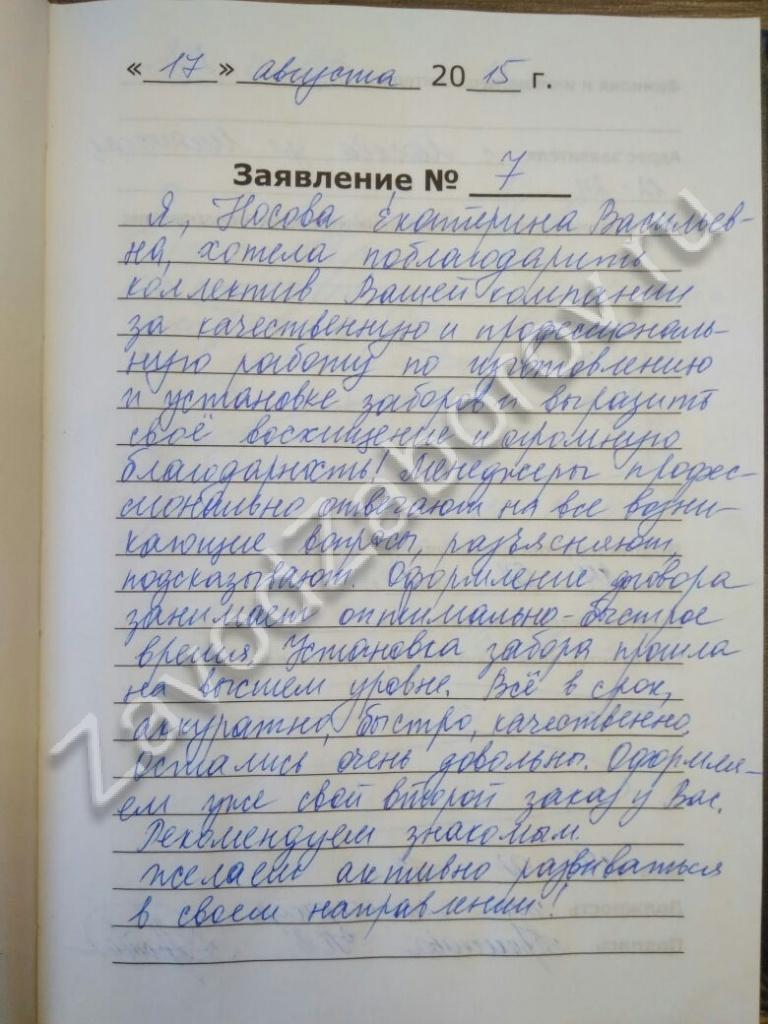 « 17 » августа 20 15 г.
Заявление № 7
Я, Носова Екатерина Васильев-
на, хотела поблагодарить
коллектив Вашей компании
за качественную и профессиональ-
ную работу по изготовлению
и установке заборов и выразить
своё восхищение и огромную
благодарность! Менеджеры профес-
сионально отвечают на все возни-
кающие вопросы, разъясняют,
подсказывают. Оформление договора
занимает оптимально-быстрое
время. Установка забора прошла
на высшем уровне. Всё в срок,
аккуратно, быстро, качественно,
остались очень довольны. Оформля-
ем уже свой второй заказ у Вас.
Рекомендуем знакомым.
Желаем активно развиваться
в своем направлении!
ZavodZaborov.ru